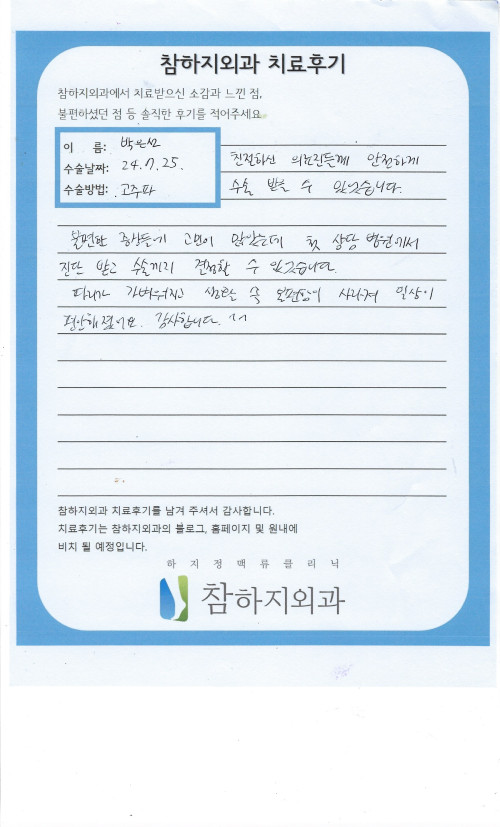 참하지외과 치료후기
참하지외과에서 치료받으신 소감과 느낀 점,
불편하셨던 점 등 솔직한 후기를 적어주세요.
이 름:
수술날짜: 24.7.25.
수술방법: 고주파
친절하신 의료진들께 안전하게
수술 받을 수 있었습니다.
불편한 증상들에 고민이 많았는데 첫 상담 병원에서
진단 받고 수술까지 결심할 수 있었습니다.
다리가 가벼워지고 심했던 쥐 불편함이 사라져 일상이
편안해졌어요. 감사합니다. ^^
참하지외과 치료후기를 남겨 주셔서 감사합니다.
치료후기는 참하지외과의 블로그, 홈페이지 및 원내에
비치 될 예정입니다.
하지정맥류클리닉
참하지외과